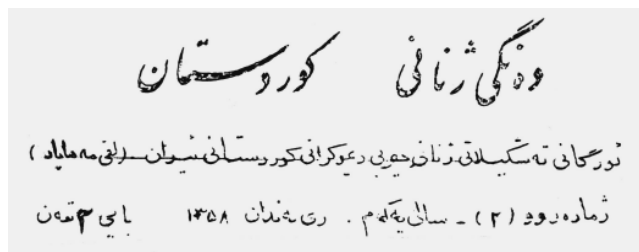 دەنگی ژنانی کوردستان
ئورگانی تەشکیلاتی ژنانی حیزبی دیموکراتی کوردستانی ئیران (لقی مەهاباد)
ژمارە دوو (٢) - سالی یەکەم . ریبەندان ١٣٥٨ بایی ٣ تمەن